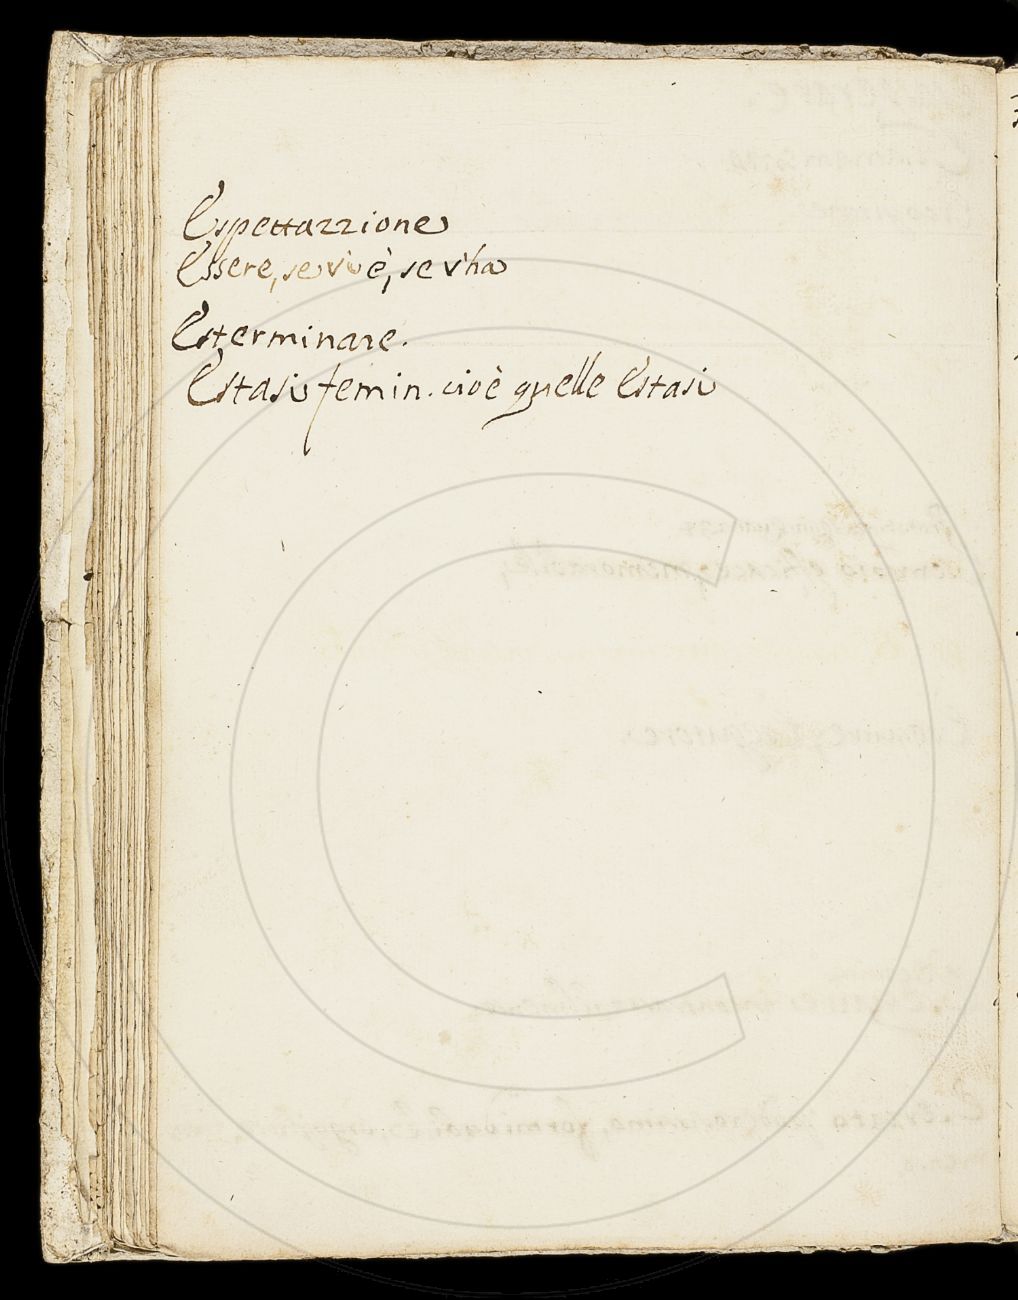 Espettazzione
Essere, se v'è, se v'ha
Esterminare.
Estasi femin. cioè quelle Estasi